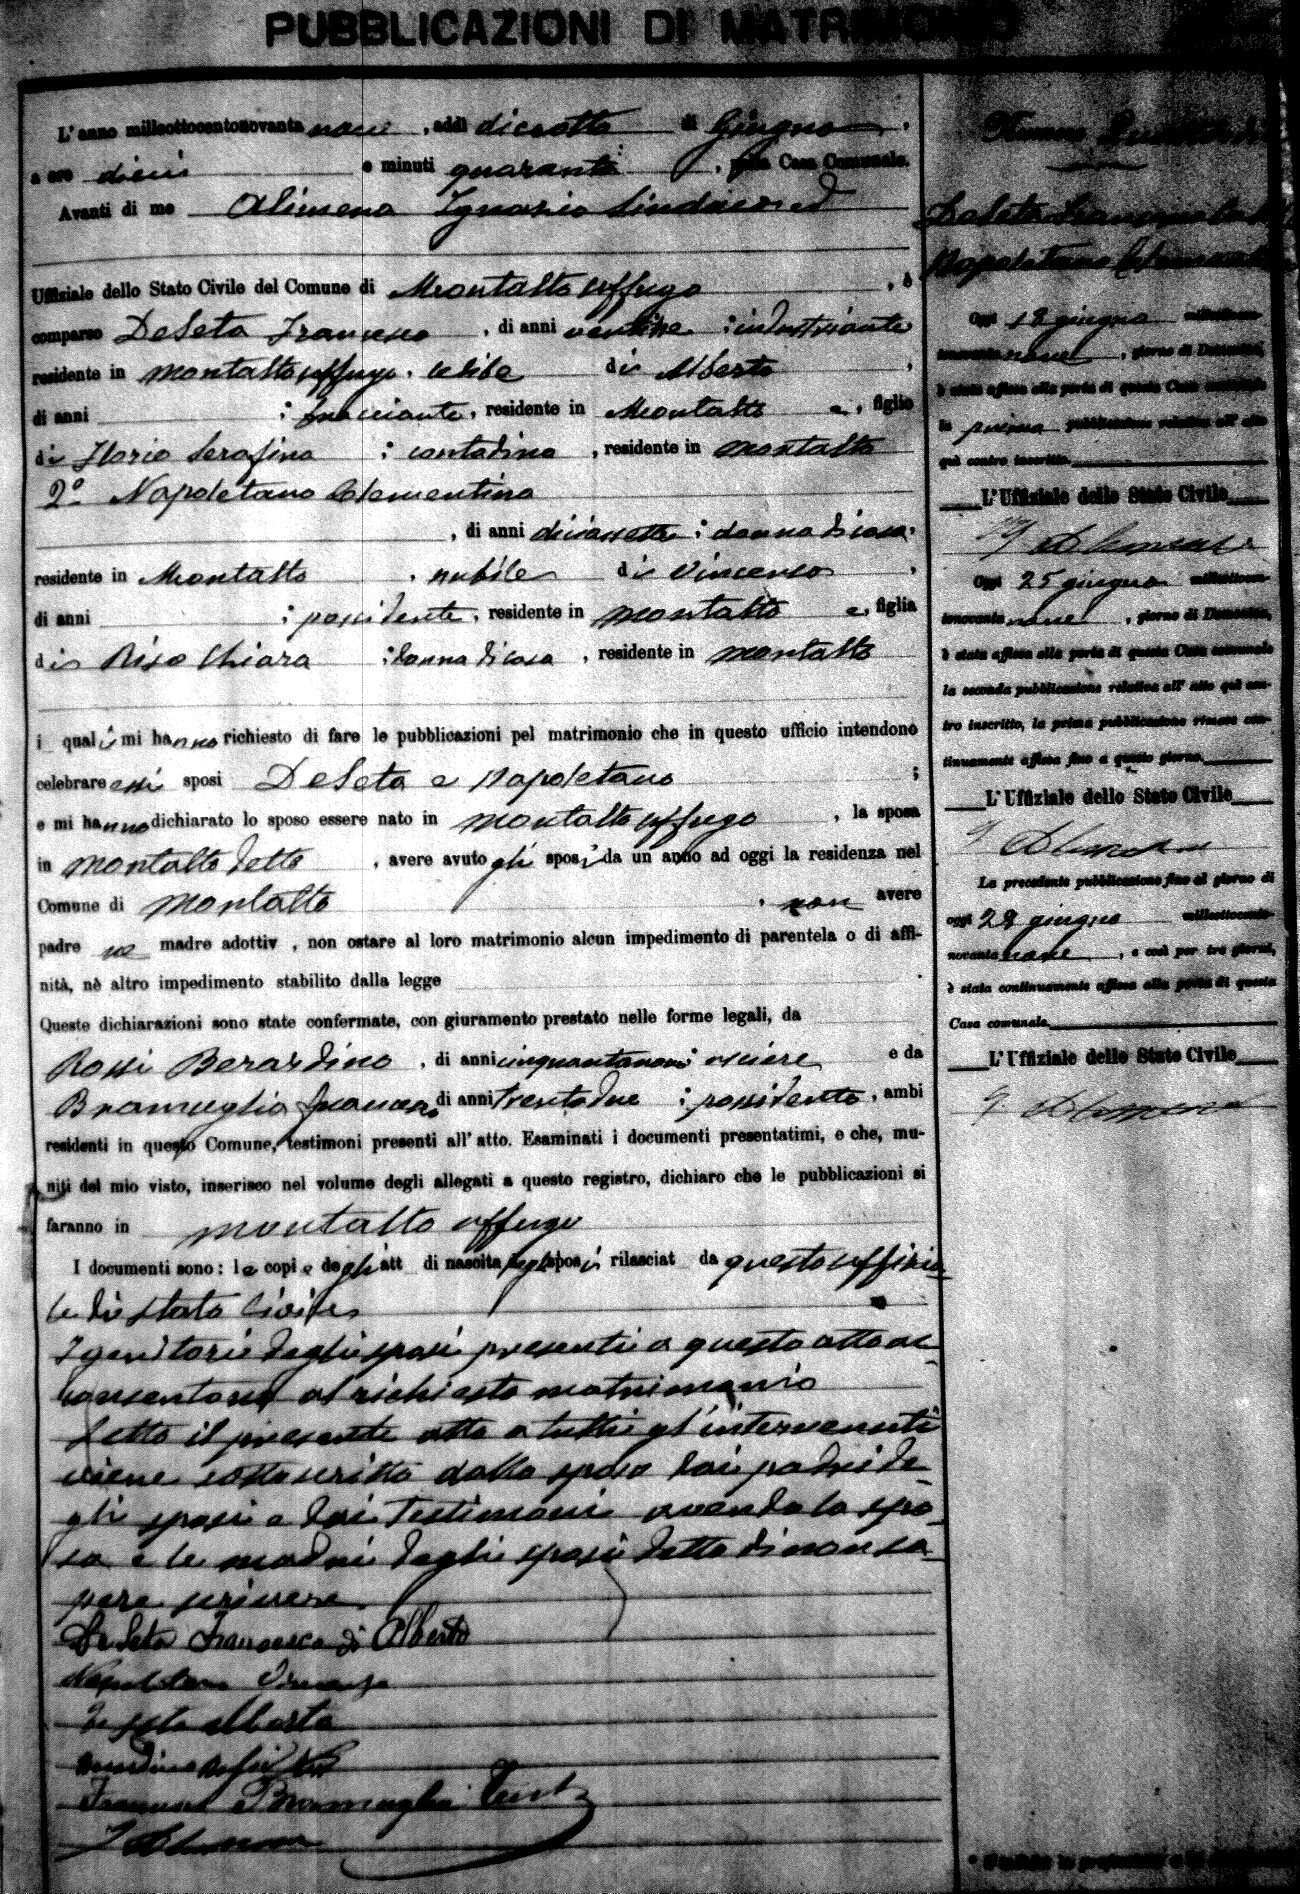 PUBBLICAZIONI DI MATRIMONIO
L'anno milleottocentonovanta nove, addì diciotto di Giugno,
a ore dieci e minuti quaranta, nella Casa Comunale.
Avanti di me Alimena Ignazio Sindaco ed
Uffiziale dello Stato Civile del Comune di Montalto Uffugo, è
comparso De Seta Francesco, di anni : industriante
residente in Montalto Uffugo, celibe di Alberto,
di anni : bracciante, residente in Montalto e, figlio
di Ilario Serafina : contadina, residente in Montalto
2º Napoletano Clementina
, di anni diciassette : donna di casa,
residente in Montalto, nubile di Vincenzo,
di anni : possidente, residente in Montalto e, figlia
di Riso Chiara : donna di casa, residente in Montalto
i quali mi hanno richiesto di fare le pubblicazioni pel matrimonio che in questo ufficio intendono
celebrare essi sposi De Seta e Napoletano ;
e mi hanno dichiarato lo sposo essere nato in Montalto Uffugo, la sposa
in Montalto detto, avere avuto gli sposi da un anno ad oggi la residenza nel
Comune di Montalto, non avere
padre nè madre adottiv , non ostare al loro matrimonio alcun impedimento di parentela o di affi-
nità, nè altro impedimento stabilito dalla legge
Queste dichiarazioni sono state confermate, con giuramento prestato nelle forme legali, da
Rossi Berardino, di anni cinquantanove : usciere e da
Bramuglia Francesco di anni trentadue : possidente, ambi
residenti in questo Comune, testimoni presenti all'atto. Esaminati i documenti presentatimi, e che, mu-
niti del mio visto, inserisco nel volume degli allegati a questo registro, dichiaro che le pubblicazioni si
faranno in Montalto Uffugo
I documenti sono: le copie degli att di nascita degli sposi rilasciat da questo uffizia
le di stato Civile
I genitori degli sposi presenti a questo atto ac
consentono al richiesto matrimonio
Letto il presente atto a tutti gl'intervenuti
viene sottoscritto dallo sposo dai padri de-
gli sposi e dai testimoni avendo la spo-
sa e le madri degli sposi detto di non sa-
pere scrivere.
De Seta Francesco di Alberto
Napoletano Vincenzo
De Seta Alberto
Berardino Rossi
Francesco Bramuglia Test
I Alimena
Numero
De Seta Francesco
Napoletano Clementina
Oggi 18 giugno milleottocen-
tonovanta nove, giorno di Domenica,
è stata affissa alla porta di questa Casa comunale
la prima pubblicazione relativa all'atto
quì contro inscritto.
L'Uffiziale dello Stato Civile
I Alimena
Oggi 25 giugno milleottocen-
tonovanta nove, giorno di Domenica,
è stata affissa alla porta di questa Casa comunale
la seconda pubblicazione relativa all'atto quì con-
tro inscritto, la prima pubblicazione rimase con-
tinuamente affissa fino a questo giorno.
L'Uffiziale dello Stato Civile
I Alimena
La precedente pubblicazione fino al giorno di
oggi 28 giugno milleottocento-
novanta nove, e così per tre giorni,
è stata continuamente affissa alla porta di questa
Casa comunale.
L'Uffiziale dello Stato Civile
I Alimena